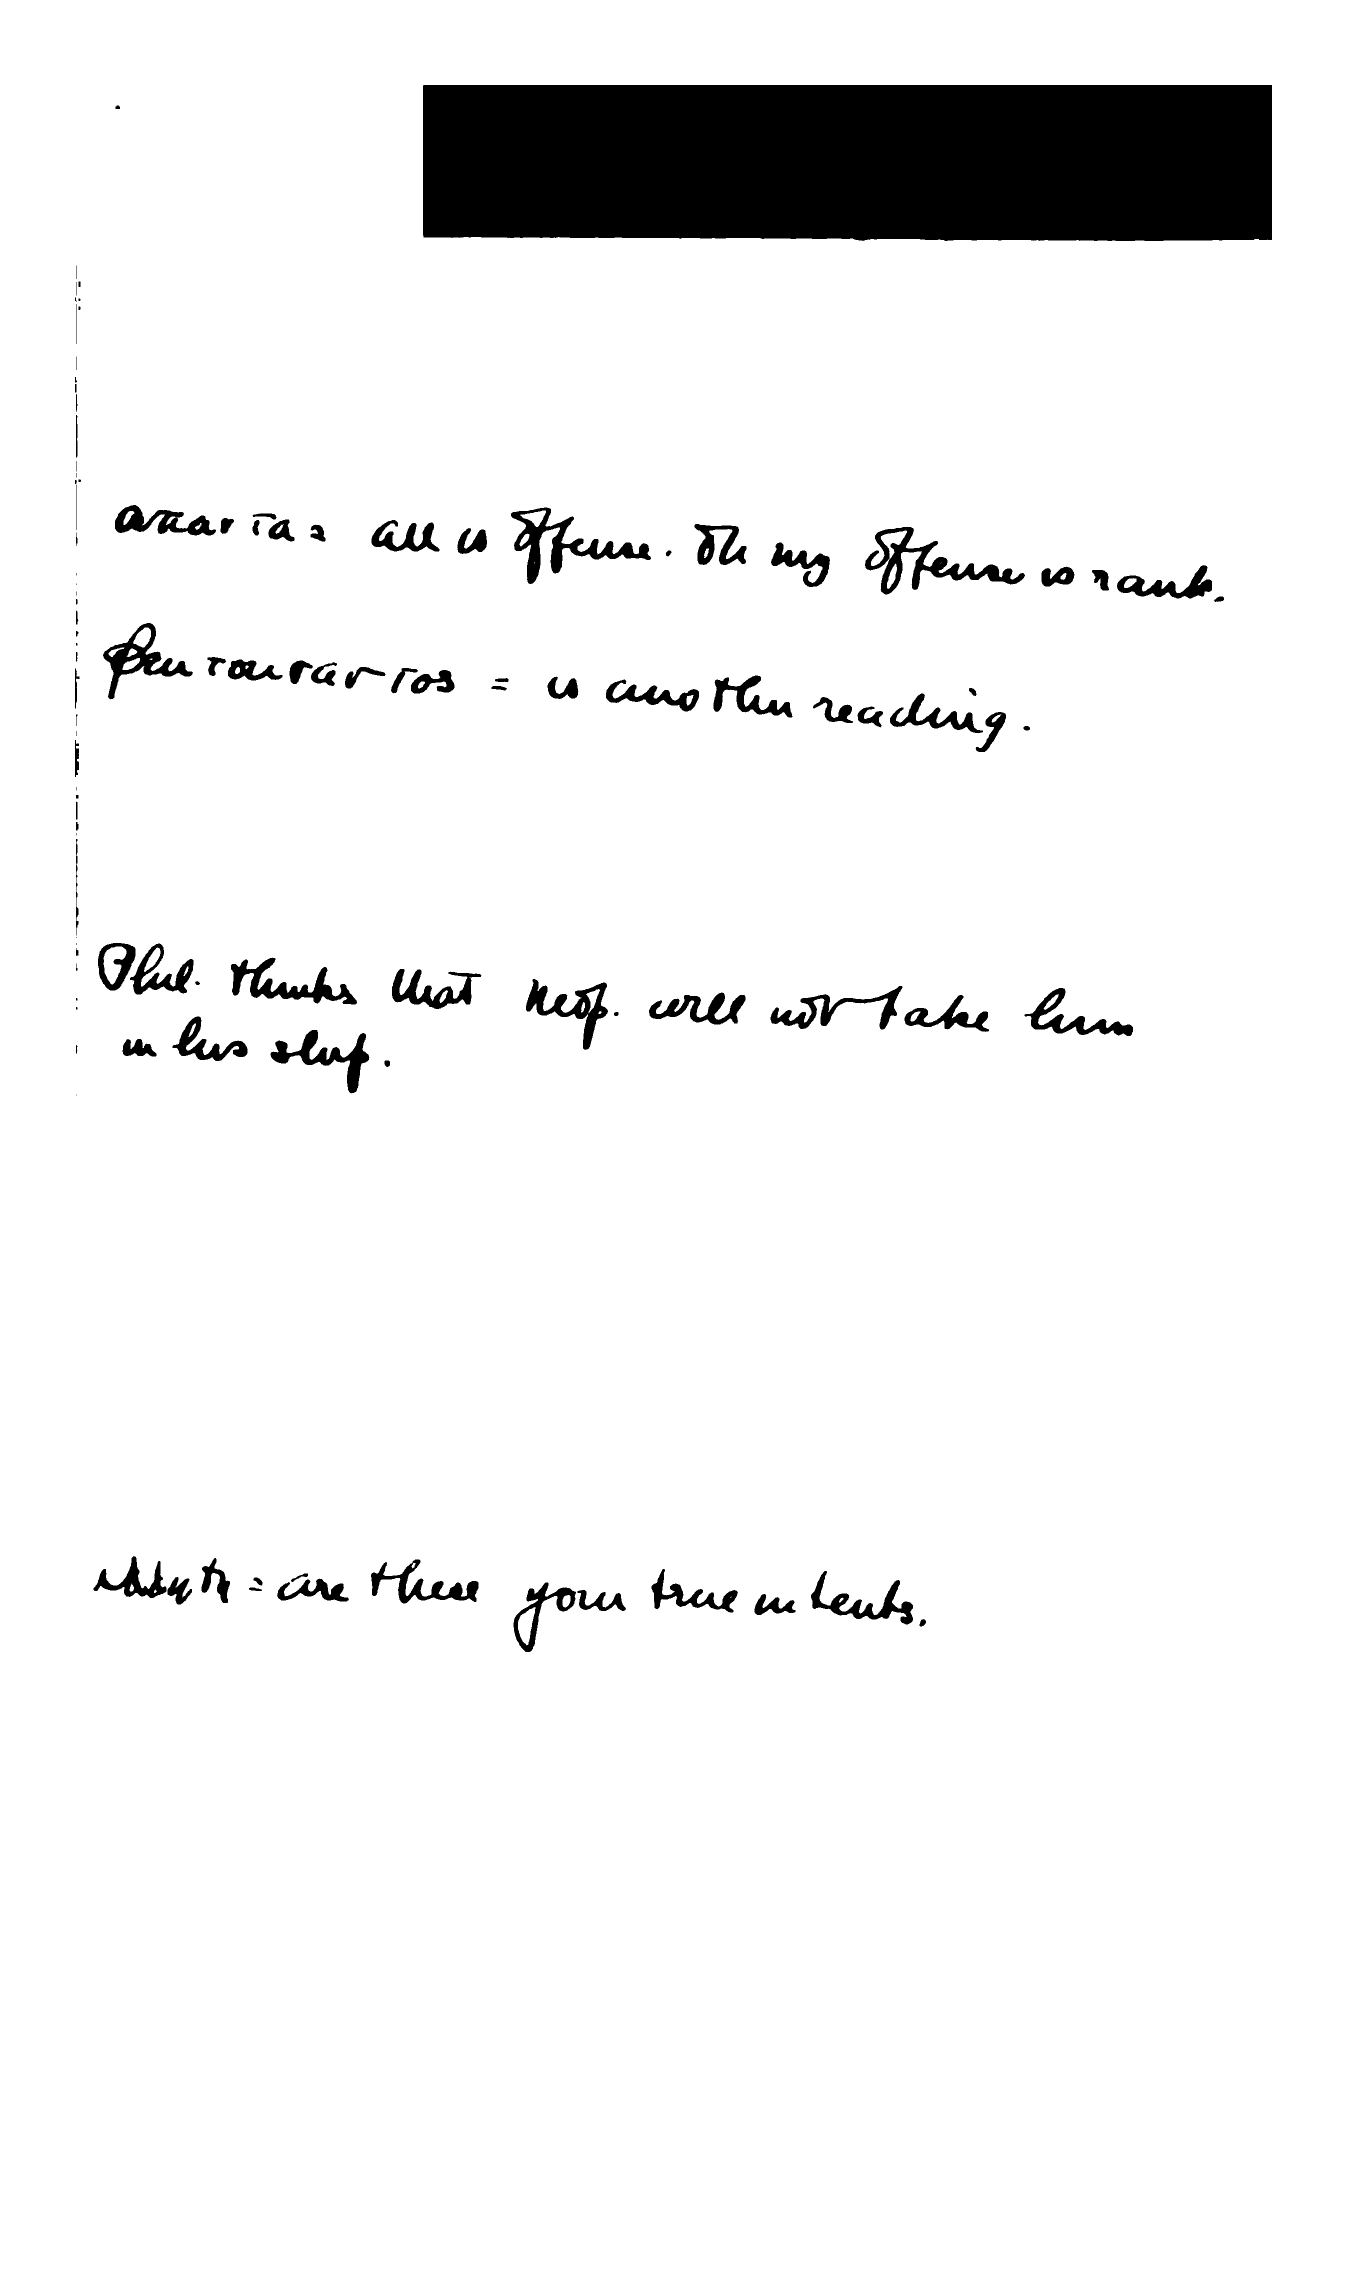 απαντα = all is offense. Oh my offense is rank.
φευ = is another reading.
Phil. thinks that Neop. will not take him
in his ship.
= are these your true intents.